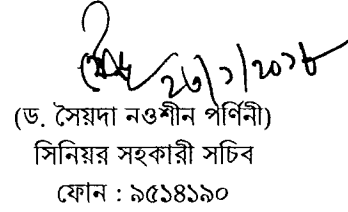 ২৬/১/২০১৮
(ড. সৈয়দা নওশীন পর্ণিনী)
সিনিয়র সহকারী সচিব
ফোন : ৯৫১৪১৯০